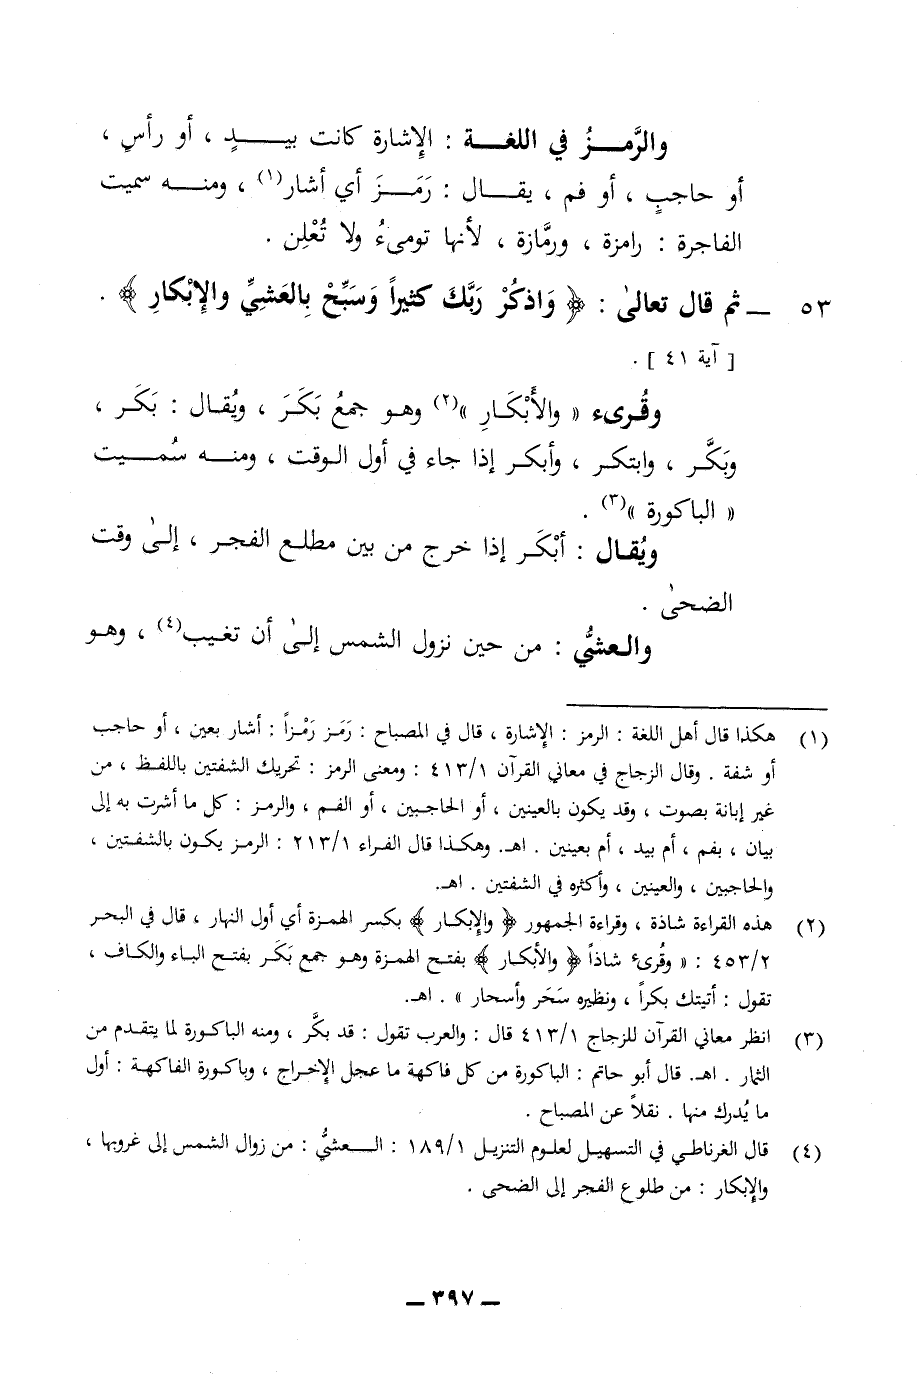 والرَّمــزُ في اللغــة : الإشارة كانت بيــدٍ ، أو رأسٍ ،
أو حاجبٍ ، أو فم ، يقــال : رَمَــزَ أي أشار(١) ، ومنــه سميت
الفاجرة : رامزة ، ورمَّازة ، لأنها تومىءُ ولا تُعْلِن .
٥٣ ــ ثم قال تعالىٰ : ﴿ وَاذكُرْ رَبَّكَ كثيراً وَسَبِّحْ بِالعَشيِّ والإِبْكارِ ﴾ .
[ آية ٤١ ] .
وقُرىء « والأَبْكَارِ »(٢) وهـو جمعُ بَكَرَ ، ويُقـال : بَكَر ،
وبَكَّر ، وابتكـر ، وأبكـر إذا جاء في أول الـوقت ، ومنــه سُمــيت
« الباكورة »(٣) .
ويُقال : أبْكَـر إذا خرج من بين مطلـع الفجـر ، إلـىٰ وقت
الضحىٰ .
والـعشيُّ : من حين نزول الشمس إلـىٰ أن تغيـب(٤) ، وهـو
(١) هكذا قال أهل اللغة : الرمز : الإشارة ، قال في المصباح : رَمَز رَمْـزاً : أشار بعين ، أو حاجب
أو شفة . وقال الزجاج في معاني القرآن ٤١٣/١ : ومعنى الرمز : تحريك الشفتين باللفـظ ، من
غير إبانة بصوت ، وقد يكون بالعينين ، أو الحاجـبين ، أو الفـم ، والرمـز : كل ما أشرت به إلى
بيان ، بفم ، أم بيد ، أم بعينين . اهـ. وهكـذا قال الفـراء ٢١٣/١ : الرمـز يكـون بالشفـتين ،
والحاجبين ، والعينين ، وأكثره في الشفتين . اهـ.
(٢) هذه القراءة شاذة ، وقراءة الجمهور ﴿ والإبكـار ﴾ بكسر الهمـزة أي أول النهار ، قال في البحـر
٤٥٣/٢ : « وقُرىء شاذاً ﴿ والأبكـار ﴾ بفتـح الهمـزة وهـو جمع بَكَـر بفتـح البـاء والكاف ،
تقول : أتيتك بكراً ، ونظيره سَحَر وأسحار » . اهـ.
(٣) انظر معاني القرآن للزجاج ٤١٣/١ قال : والعرب تقول : قد بكَّر ، ومنه الباكـورة لما يتقـدم من
الثمار . اهـ. قال أبو حاتم : الباكورة من كل فاكهة ما عجل الإخـراج ، وباكـورة الفاكهـة : أول
ما يُدرك منها . نقلاً عن المصباح .
(٤) قال الغرناطـي في التسهيـل لعلـوم التنزيـل ١٨٩/١ : الــعشيُّ : من زوال الشمس إلى غروبها ،
والإبكار : من طلوع الفجر إلى الضحى .
ــ ٣٩٧ ــ